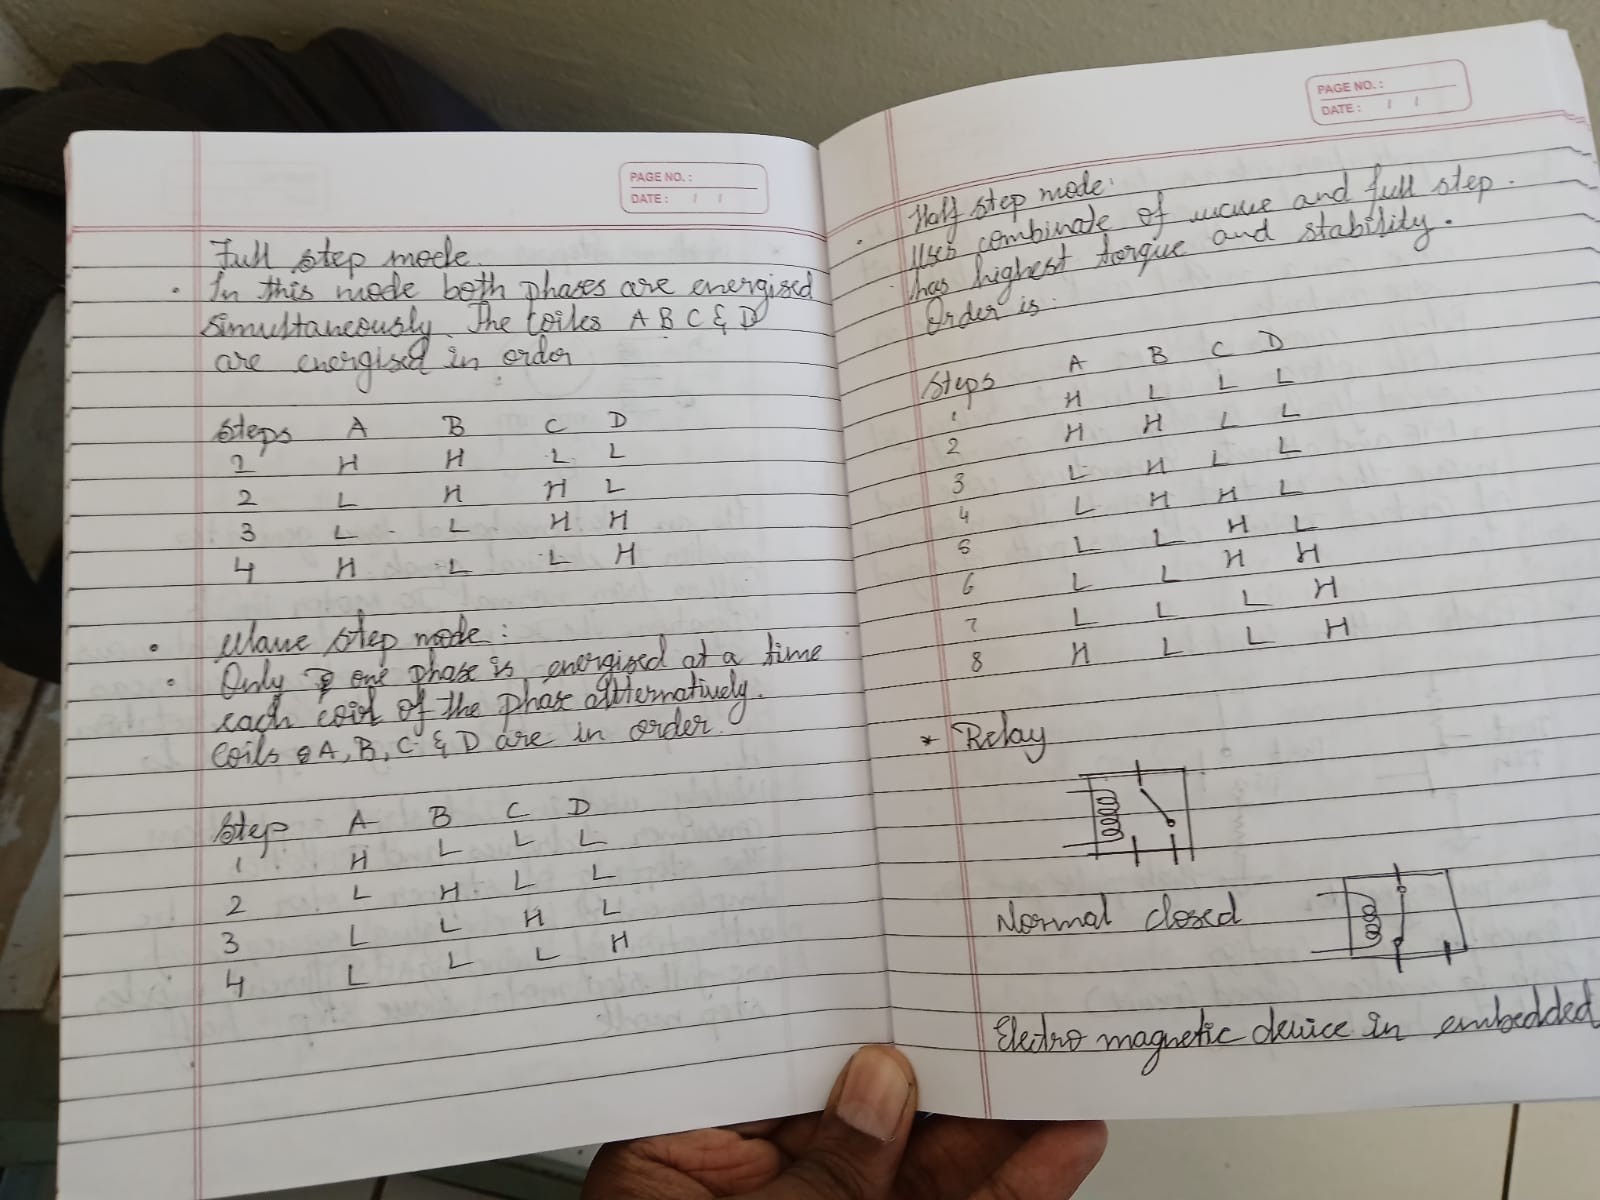 PAGE NO. :
DATE : / /
Full step mode.
• In this mode both phases are energised
simultaneously. The coiles A B C & D
are energised in order
Steps A B C D
1 H H L L
2 L H H L
3 L L H H
4 H L L H
• Wave step mode :
• Only one phase is energised at a time
each coil of the phase altternatively.
Coils A, B, C & D are in order.
Step A B C D
1 H L L L
2 L H L L
3 L L H L
4 L L L H
PAGE NO. :
DATE : / /
Half step mode:
• Uses combinate of wave and full step.
has highest torque and stability.
Order is:
Steps A B C D
1 H L L L
2 H H L L
3 L H L L
4 L H H L
5 L L H L
6 L L H H
7 L L L H
8 H L L H
* Relay
Normal closed
Electro magnetic device in embedded